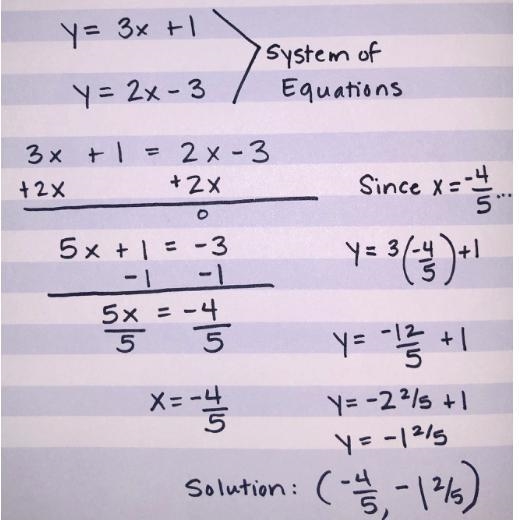 y = 3x + 1
y = 2x - 3
System of
Equations
3x + 1 = 2x - 3
+2x +2x
0
5x + 1 = -3
-1 -1
5x/5 = -4/5
x = -4/5
Since x = -4/5...
y = 3(-4/5) + 1
y = -12/5 + 1
y = -2 2/5 + 1
y = -1 2/5
Solution: (-4/5, -1 2/5)